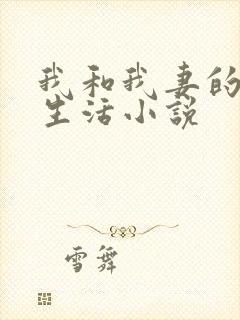 我和我妻的
生活小说
雪舞